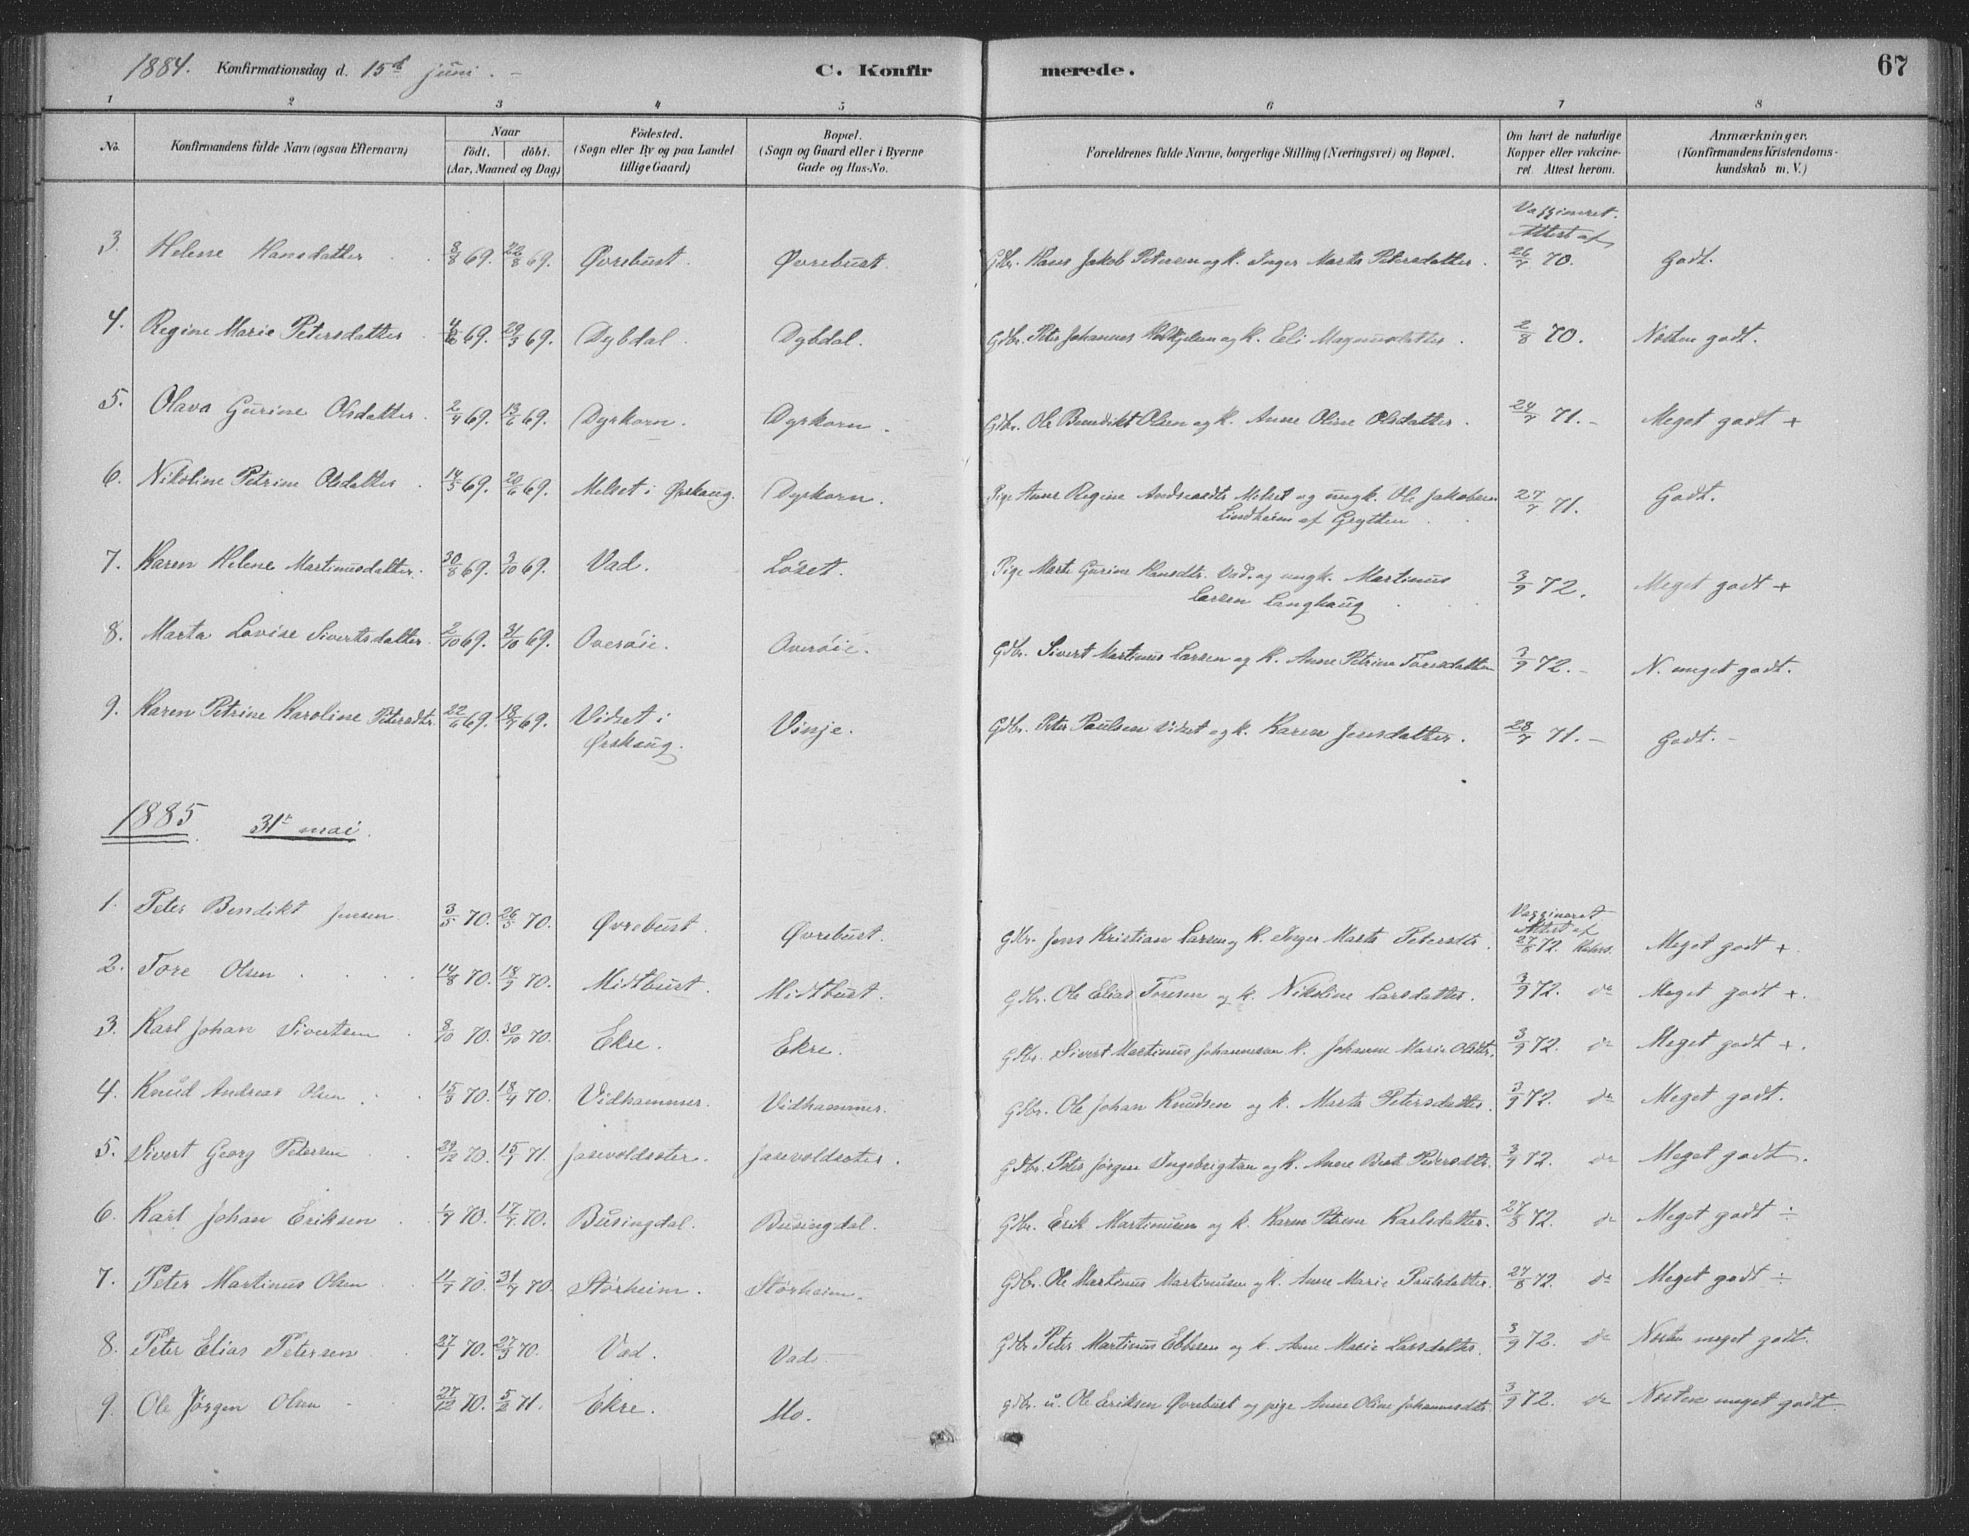 1884. Konfirmationsdag d. 15de juni. C. Konfirmerede. 67
1 2 3 4 5 6 7 8
No. Konfirmandens fulde Navn (ogsaa Efternavn) Naar født. døbt. (Aar, Maaned og Dag) Fødested. (Sogn eller By og paa Landet tillige Gaard) Bopæl. (Sogn og Gaard eller i Byerne Gade og Hus-No. Forældrenes fulde Navne, borgerlige Stilling (Næringsvei) og Bopæl. Om havt de naturlige Kopper eller vakcineret. Attest herom. Anmærkninger. (Konfirmandens Kristendomskundskab m. V.)
Vaxxineret.
Attest af
3. Helene Hansdatter 8/8 69. 22/8 69. Øvrebust. Øvrebust. Gdbr. Hans Jakob Petersen og k. Inger Marta Petersdatter. 26/7 70. Godt.
4. Regine Marie Petersdatter 69. 29/3 69. Dybdal. Dybdal. Gdbr. Peter Johannes og k. Eli Magnusdatter. 2/8 70. Næsten godt.
5. Olava Gurine Olsdatter. 2/4 69. 13/6 69. Dyrkorn. Dyrkorn. Gdbr. Ole Bendikt Olsen og k. Anne Oline Olsdatter. 24/7 71. Meget godt +
6. Nikoline Petrine Olsdatter 14/5 69. 20/6 69. Melset i Ørskaug. Dyrkorn. Pige Anne Regine Andreasdtr Melset og ungk. Ole Jakobsen
Lindheim af Grytten 27/7 71. Godt.
7. Karen Helene Martinusdatter. 30/8 69. 3/10 69. Vad. Løset. Pige Marte Gurine Hansdtr. Vad. og ungk. Martinus
Larsen Langhaug 3/9 72. Meget godt +
8. Marta Lovise Sivertsdatter. 2/10 69. 31/10 69. Overøie. Overøie. Gdbr. Sivert Martinus Larsen og k. Anne Petrine Toresdatter 3/9 72. N. meget godt.
9. Karen Petrine Karoline Petersdtr. 22/6 69. 18/7 69. Vidset i
Ørskaug. Vinje. Gdbr. Peter Paulsen Vidset og k. Karen Jensdatter. 28/7 71. Godt.
1885 31te mai.
Vaxxineret
Attest af
1. Peter Bendikt Jensen 3/5 70. 26/5 70. Øvrebust. Øvrebust. Gdbr. Jens Kristian Larsen og k. Inger Marta Petersdtr. 27/8 72. Meget godt +.
2. Tore Olsen 14/8 70. 18/9 70. Midtbust. Midtbust. Gdbr. Ole Elias Toresen og k. Nikoline Larsdatter. 3/9 72. do Meget godt +.
3. Karl Johan Sivertsen 8/10 70. 30/10 70. Ekre. Ekre. Gdbr. Sivert Martinus Johannesen k. Johanne Marie Olsdtr. 3/9 72. do Meget godt +.
4. Knud Andreas Olsen 15/3 70. 18/4 70. Vidhammer. Vidhammer. Gdbr. Ole Johan Knudsen og k. Marta Petersdatter. 3/9 72. do Meget godt.
5. Sivert Georg Petersen 29/12 70. 15/1 71. Jasevoldsæter. Jasevoldsæter. Gdbr. Peter Jørgen Ingebrigtsen og k. Anne Berte Petersdtr. 3/9 72. do Meget godt.
6. Karl Johan Eriksen 1/7 70. 17/7 70. Busingdal. Busingdal. Gdbr. Erik Martinusen og k. Karen Petrine Karlsdatter. 27/8 72. do Meget godt ÷
7. Peter Martinus Olsen 11/7 70. 31/7 70. Størheim. Størheim. Gdbr. Ole Martinus Martinusen og k. Anne Marie Paulsdatter. 27/8 72. do Meget godt ÷
8. Peter Elias Petersen 27/1 70. 27/3 70. Vad. Vad. Gdbr Peter Martinus Ebbesen og k. Anne Marie Larsdatter. 3/9 72. do Næsten meget godt.
9. Ole Jørgen Olsen 27/12 70. 5/2 71. Ekre. Mo. Gdbr. u. Ole Eriksen Øvrebust og pige Anne Oline Johannesdtr. 3/9 72. do Næsten meget godt.